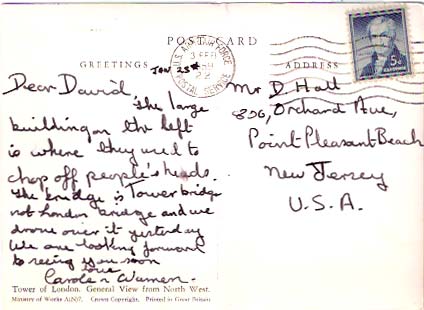 POST CARD
GREETINGS
ADDRESS
Jan 23rd
U.S. AIR FORCE
POSTAL SERVICE
5¢
Dear David,
The large
building on the left
is where they used to
chop off people's heads.
The bridge is Tower bridge
not London bridge and we
drove over it yesterday
We are looking forward
to seeing you soon
love
Carole & Warren.
Mr D. Hall
896, Orchard Ave,
Point Pleasant Beach
New Jersey
U.S.A.
Tower of London. General View from North West.
Ministry of Works A(N)7. Crown Copyright. Printed in Great Britain